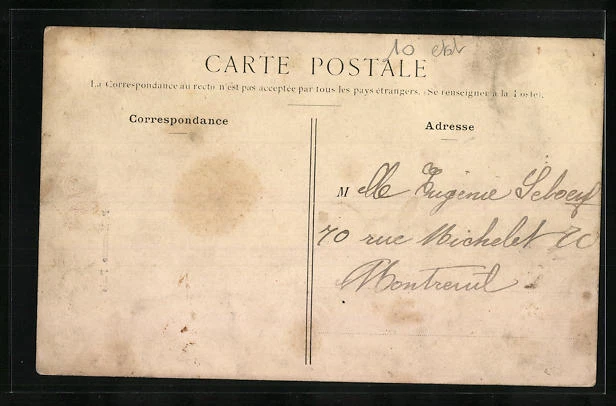 10
CARTE POSTALE
La Correspondance au recto n'est pas acceptée par tous les pays étrangers. (Se renseigner à la Poste).
Correspondance
Adresse
M lle Eugénie Leboeuf
70 rue Michelet 70
Montreuil